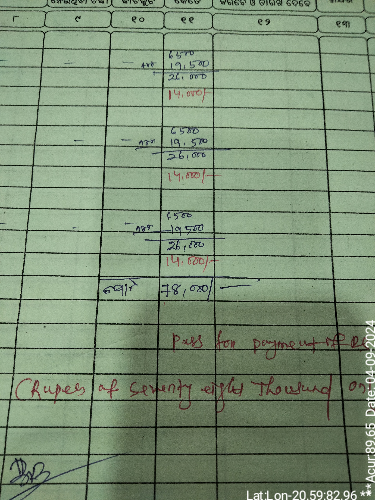 ୮ ୯ ୧୦ ୧୧ ୧୨ ୧୩
6500
19,500
26,000
14,000/-
6500
19,500
26,000
14,000/-
6500
19,500
26,000
14,000/-
78,000/-
Pass for payment of
(Rupees of seventy eight Thousand
Lat:Lon-20.59:82.96 ** Acur:89.65 Date-04-09-2024